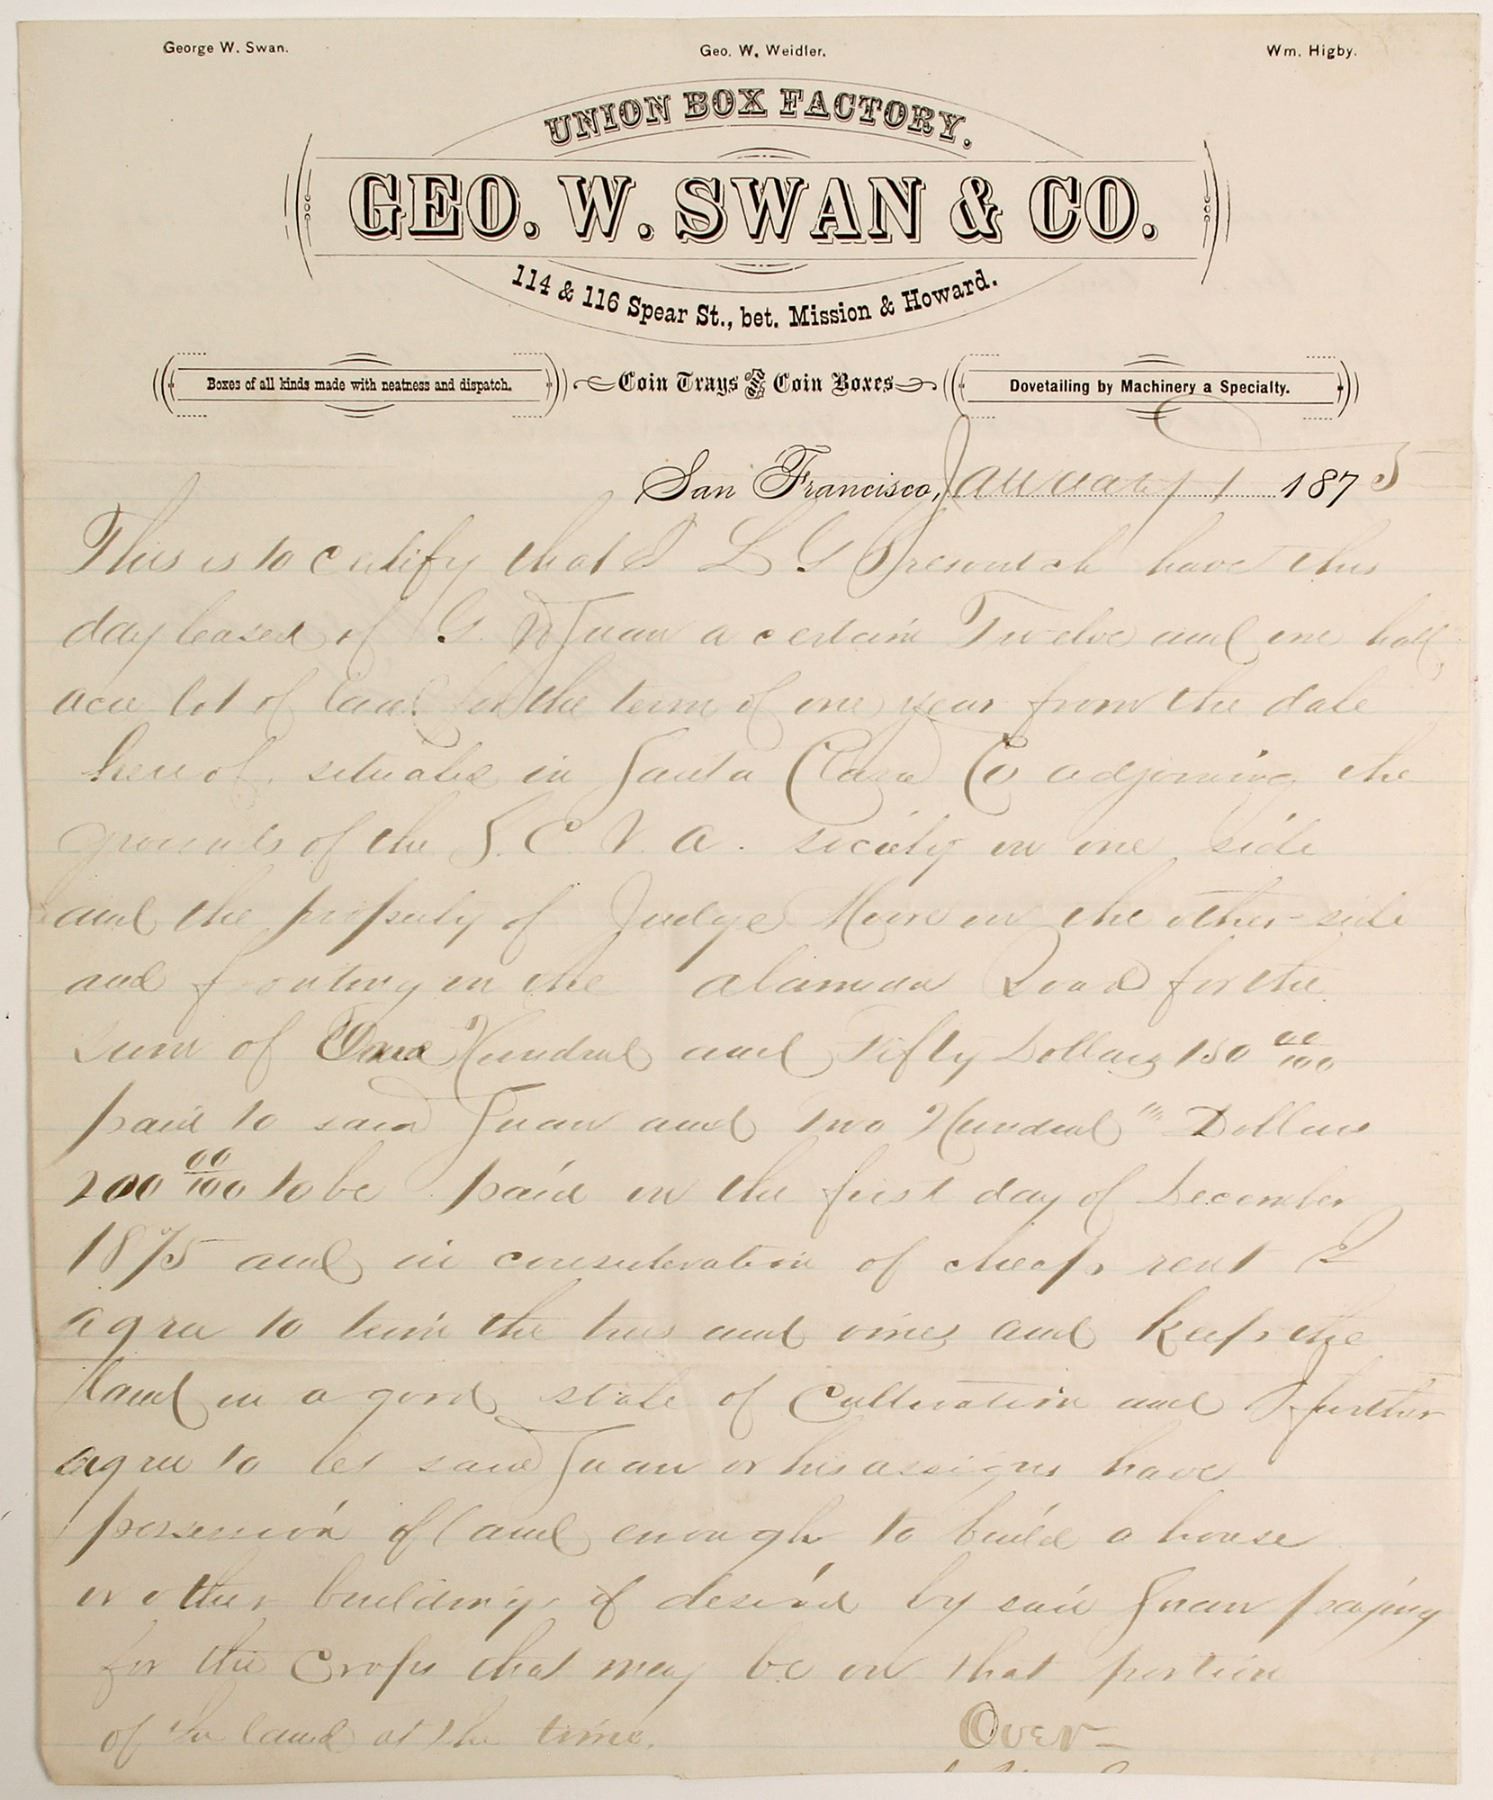 George W. Swan. Geo. W. Weidler. Wm. Higby.
UNION BOX FACTORY.
GEO. W. SWAN & CO.
114 & 116 Spear St., bet. Mission & Howard.
Boxes of all kinds made with neatness and dispatch. Coin Trays and Coin Boxes Dovetailing by Machinery a Specialty.
San Francisco, January 1 1875
This is to certify that I L G have this
day leased of G. W Swan a certain Twelve and one half
acre lot of land for the term of one year from the date
hereof. situate in Santa Clara Co adjoining the
grounds of the S. C. V. A. society on one side
and the property of Judge on the other side
and fronting on the alameda Road for the
sum of One Hundred and Fifty Dollars 150 00/100
paid to said Swan and Two Hundred " Dollars
200 00/100 to be paid on the first day of December
1875 and in consideration of cheap rent I
agree to trim the trees and vines and keep the
land in a good state of Cultivation and I further
agree to let said Swan or his assigns have
possession of land enough to build a house
or other buildings if desired by said Swan paying
for the Crops that may be on that portion
of the land at the time.
Over